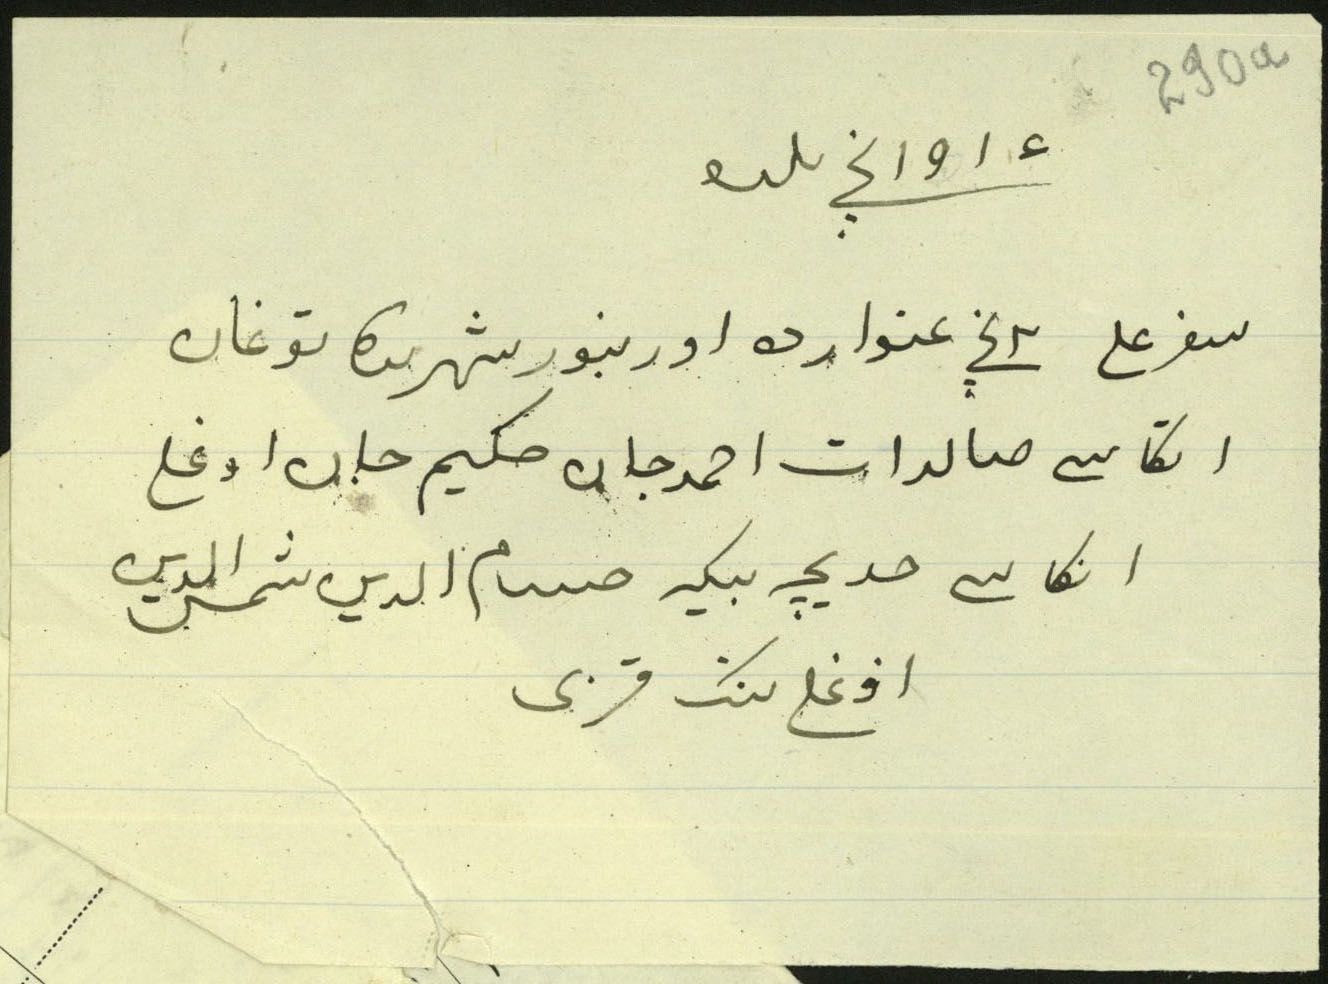 290a
۱۹۱۶ نچی یلده
سفر علی ۳ نچی عنواردە اورنبور شهرنده توغان
اتقاسی صالدات احمدجان حکیم جان اوغلی
انکاسی خدیجه بیکه حسام الدین شمس الدین
اوغلی ننک قزی